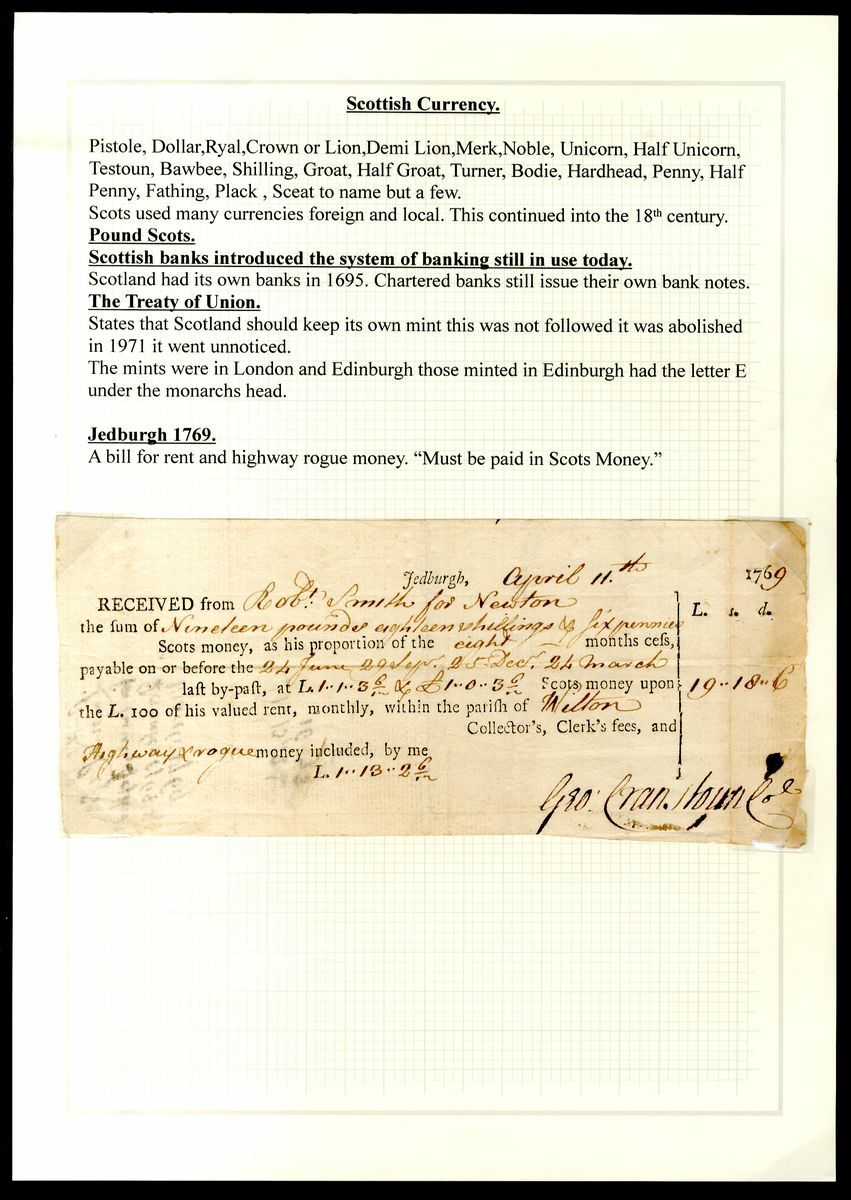 Scottish Currency.
Pistole, Dollar,Ryal,Crown or Lion,Demi Lion,Merk,Noble, Unicorn, Half Unicorn,
Testoun, Bawbee, Shilling, Groat, Half Groat, Turner, Bodie, Hardhead, Penny, Half
Penny, Fathing, Plack , Sceat to name but a few.
Scots used many currencies foreign and local. This continued into the 18th century.
Pound Scots.
Scottish banks introduced the system of banking still in use today.
Scotland had its own banks in 1695. Chartered banks still issue their own bank notes.
The Treaty of Union.
States that Scotland should keep its own mint this was not followed it was abolished
in 1971 it went unnoticed.
The mints were in London and Edinburgh those minted in Edinburgh had the letter E
under the monarchs head.
Jedburgh 1769.
A bill for rent and highway rogue money. “Must be paid in Scots Money.”
Jedburgh, April 11.th 1769
RECEIVED from Robt. Smith for Newton
L. s. d.
the ſum of Nineteen pounds eighteen shillings & six pennies
Scots money, as his proportion of the eight months ceſs,
payable on or before the 24 June 29 Sepr. 25 Decr. 24 march
laſt by-paſt, at L. 1..1..3 6/12 & £1..0..3 6/12 Scots money upon 19..18..6
the L. 100 of his valued rent, monthly, within the pariſh of Wilton
Collector's, Clerk's fees, and
Highway & rogue money included, by me
L. 1..13..2 6/12
Geo: Cranstoun Col